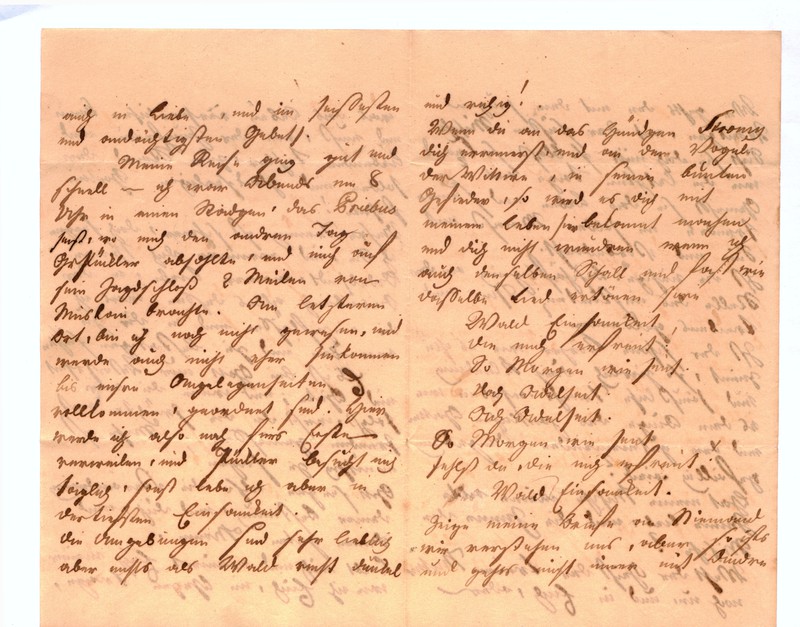 auch in Liebe, und im heissesten
und andächtigsten Gebet.
Meine Reise ging gut und
schnell – ich war Abends um 8
Uhr in einem Städtgen, das Priebus
heist, wo mich den andren Tag
Pückler abholte, und mich auf
sein Jagdschloß 2 Meilen von
Muskau brachte. Am letzteren
Ort, bin ich noch nicht gewesen, und
werde auch nicht eher hinkommen
bis unsre Angelegenheiten
vollkommen, geordnet sind. Hier
werde ich also noch fürs Erste
verweilen, und Pückler besucht mich
täglich, sonst lebe ich aber in
der tiefsten Einsamkeit.
die Umgebungen sind sehr lieblich
aber nichts als Wald nicht dunkel
und ruhig!
Wenn du an das Hündgen Stromy
dich errinnerst, und an den Vogel
der Wittwe, in seinen bunten
Gefieder, so wird es dich mit
meinem Leben hier bekannt machen
und dich nicht wundren wenn ich
auch denselben Schall und fast wie
dasselbe Lied ertönen höre
Wald Einsamkeit,
die mich erfreut,
So Morgen wie heut.
Nach Idelheit
Ach Idelheit.
So Morgen wie heut
fehlst du, die mich erfreut.
Wald Einsamkeit.
Zeige meine Briefe an Niemand
wir verstehen uns, aber so ists
und gehts nicht immer mit Andren